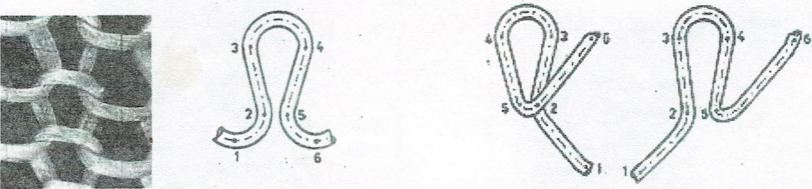 3 4
2 5
1 6
4 3 6
5 2
1
3 4 6
2 5
1